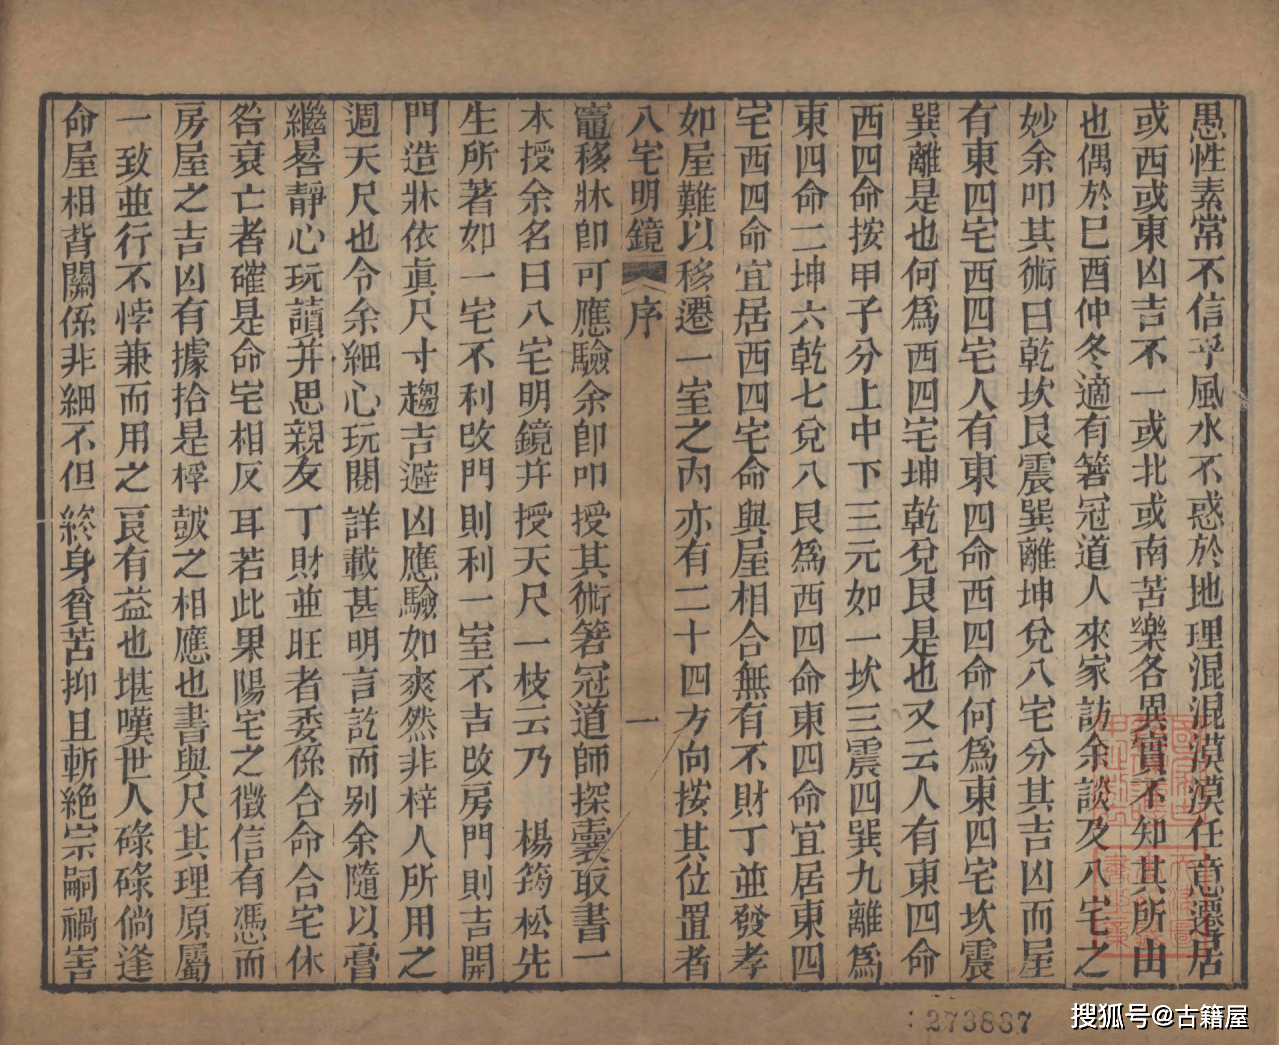 愚性素常不信乎風水不惑於地理混混漠漠任意遷居
或西或東凶吉不一或北或南苦樂各異實不知其所由
也偶於巳酉仲冬適有簮冠道人來家訪余談及八宅之
妙余叩其術曰乾坎艮震巽離坤兌八宅分其吉凶而屋
有東四宅西四宅人有東四命西四命何爲東四宅坎震
巽離是也何爲西四宅坤乾兌艮是也又云人有東四命
西四命按甲子分上中下三元如一坎三震四巽九離爲
東四命二坤六乾七兌八艮爲西四命東四命宜居東四
宅西四命宜居西四宅命與屋相合無有不財丁並發孝
如屋難以移遷一室之內亦有二十四方向按其位置者
八宅明鏡 序 一
竈移牀卽可應驗余卽叩授其術簮冠道師探囊取書一
本授余名曰八宅明鏡幷授天尺一枝云乃 楊筠松先
生所著如一宅不利改門則利一室不吉改房門則吉開
門造牀依眞尺寸趨吉避凶應驗如爽然非梓人所用之
週天尺也令余細心玩閱詳載甚明言訖而别余隨以膏
繼晷靜心玩讀幷思親友丁財並旺者委係合命合宅休
咎衰亡者確是命宅相反耳若此果陽宅之徵信有憑而
房屋之吉凶有據拾是桴皷之相應也書與尺其理原屬
一致並行不悖兼而用之良有益也堪嘆世人碌碌倘逢
命屋相背關係非細不但終身貧苦抑且斬絶宗嗣禍害
273887
搜狐号@古籍屋